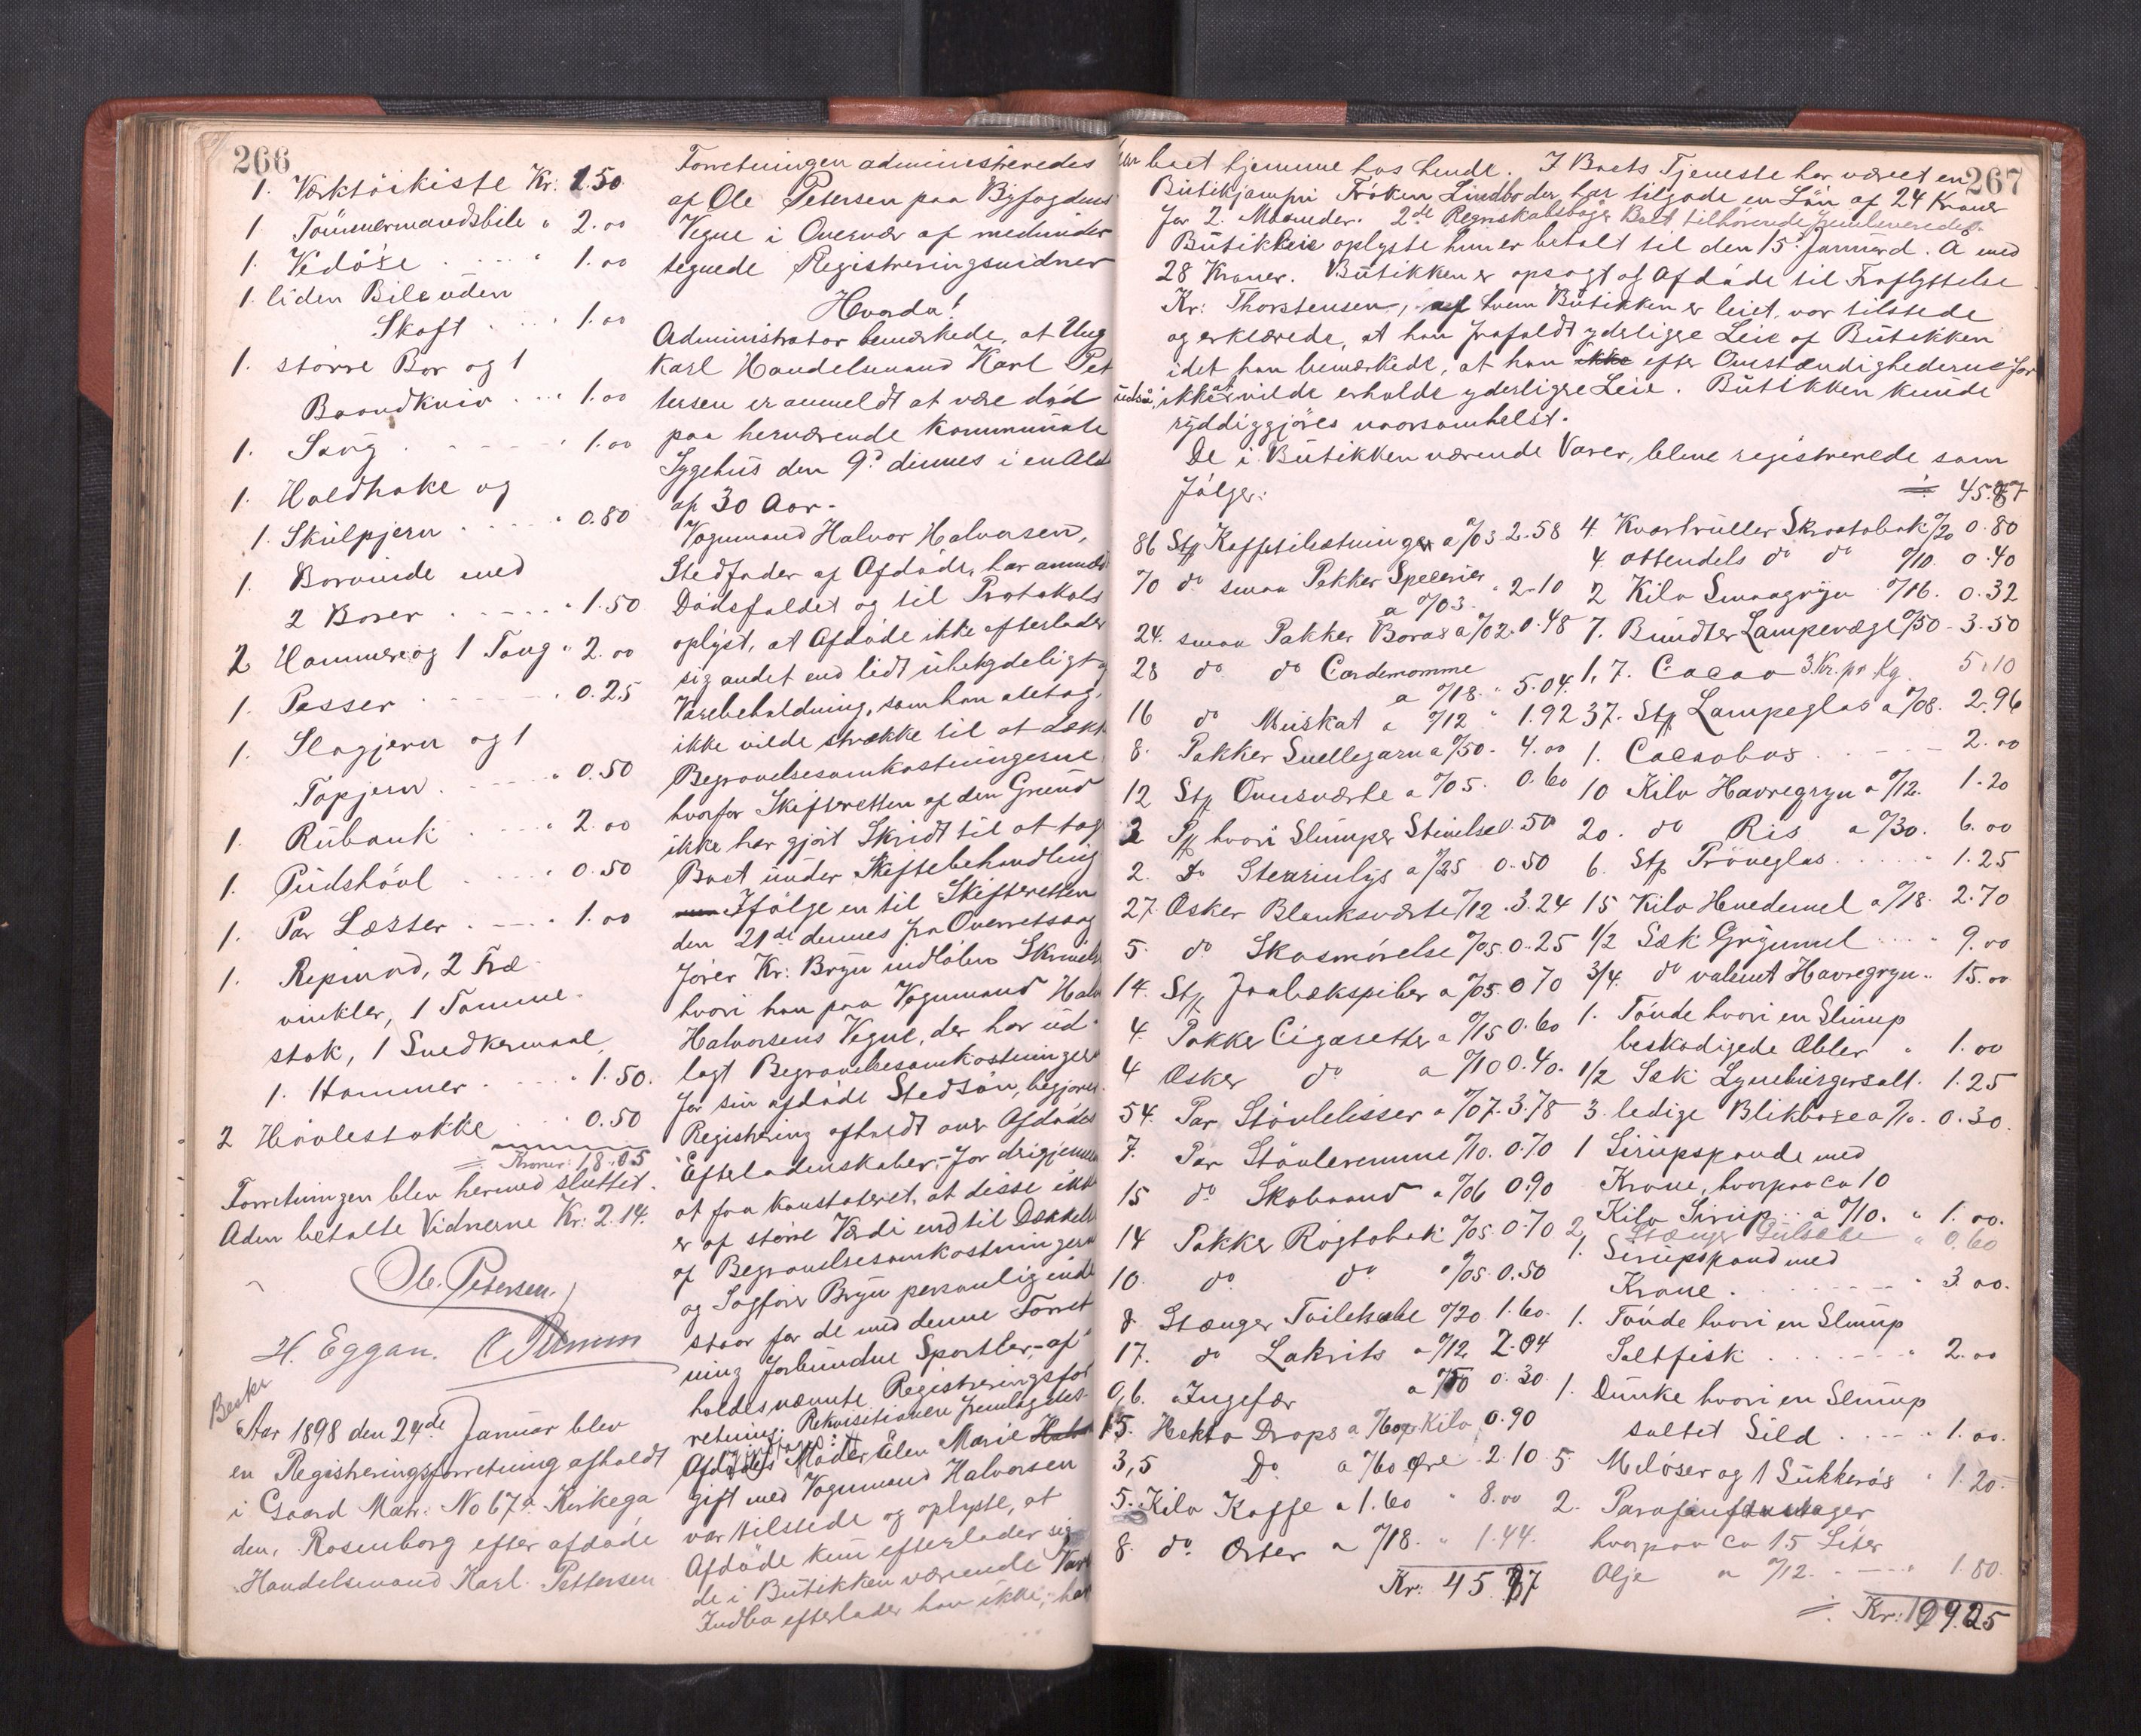 266
1. Værktöikiste Kr: 1.50
1 Tömmermandsbile " 2.00
1. Vedöxe . . . . " 1.00
1. liden Bile uden
Skaft . . . . 1.00
1. större Bor og 1
Baandkniv . . . 1.00
1. Saug . . . . . 1.00
1. Holdhake og
1. Skulpjern . . . . " 0.80
1. Borvinde med
2 Borer . . . . . " 1.50
2 Hammere og 1 Tang " 2.00
1. Passer . . . . . 0.25
1. Slagjern og 1
Tapjern . . . . " 0.50
1. Rubank . . . . " 2.00
1. Pudshövl . . . . " 0.50
1. Par Læster . . . . " 1.00
1. Ripmod, 2 Træ
vinkler, 1 Tomme-
stok, 1 Snedkermaal
1. Hammer . . . . " 1.50.
2 Hövlestokke . . . 0.50
Kroner: 18.05
Forretningen blev hermed sluttet.
Aden betalte Vidnerne Kr: 2.14.
Ol. Petersen.
H. Eggan.
Aar 1898 den 24de Januar blev
en Registreringsforretning afholdt
i Gaard Matr: No 67a Kirkega
den, Rosenborg efter afdøde
Handelsmand Karl Pettersen
Forretningen administreredes
af Ole Petersen paa Byfogdens
Vegne i Overvær af medunder
tegnede Registreringsvidner
Hvorda!
Administrator bemærkede, at Ung
karl Handelsmand Karl Pet
tersen er anmeldt at være död
paa herværende Kommunale
Sygehus den 9d dennes i en Alde
af 30 Aar.
Vognmand Halvor Halvorsen,
Stedfader af Afdöde, har anmeld
Dödsfaldet og til Protokols
oplyst, at Afdöde ikke efterlader
sig andet end lidt ubetydeligt
Varebeholdning, som han antog,
ikke vilde strække til at dække
Begravelsesomkostningerne,
hvorfor Skifteretten af den Grund
ikke har gjort Skridt til at tage
Boet under Skiftebehandling
Ifölge en til Skifteretten
den 21de dennes fra Overretssag
förer Kr: Bryn indlöben Skrivelse
hvori han paa Vognmand Halv
Halvorsens Vegne, der har ud-
lagt Begravelsesomkostningern
for sin afdöde Stedsön, begjærer
Registrering afholdt over Afdödes
Efterladenskaber,- for drigjennem
at faa konstateret, at disse ikke
er af större Værdi end til Dækkels
af Begravelsesomkostningerne
og Sagförer Bryn personlig inde
staar for de med denne Forret
ning forbundne Sportler,- af-
holdes nævnte Registreringsfor
retning. Rekvisitionen fremlagdes.
Afdödes Moder Elen Marie
gift med Vognmand Halvorsen
var tilstede og oplyste, at
Afdöde kun efterlader sig
de i Butikken værende Vare
Indbo efterlader han ikke, han
267
har boet hjemme hos hende. I Boets Tjeneste har været en
Butikjomfru Fröken Lindbo der har tilgode en Lön af 24 Kroner
for 2 Maaneder. 2de Regnskabsböger Boet tilhörende fremleveredes.
Butikleie oplyste hun er betalt til den 15d Januar d. A med
28 Kroner. Butikken er opsagt af Afdöde til Fraflyttelse
Kr: Thorstensen, af hvem Butikken er leiet, var tilstede
og erklærede, at han frafaldt yderligere Leie af Butikken
idet han bemærkede, at han ikke efter Omstændighederne for
ikke at vilde erholde yderligere Leie. Butikken kunde
ryddiggjöres naarsomhelst.
De i Butikken værende Varer, bleve registrerede som
fölger:
86 Stp Kaffetilsetninger a 0/03 2.58
70 do smaa Pakker Specerier
a 0/03. " 2.10
24. smaa Pakker Borax a 0/02. 0.48
28 do do Cardemomme
a 0/18. " 5.04.
16 do Muskat a 0/12 " 1.92
8. Pakker Snellegarn a 0/50. 4.00
12 Stp Ovnsværte a 0/05. 0.60
2 Stp hvori Slumper Stivelse 0.50
2. do Stearinlys a 0/25 0.50
27. Æsker Blanksværte 0/12. 3.24
5. do Skosmörelse 0/05. 0.25
14. Stp Jaabækspiber a 0/05. 0.70
4. Pakker Cigaretter a 0/15 0.60
4 Æsker do a 0/10 0.40.
54. Par Stövlelisser a 0/07. 3.78
7. Par Stövleremme 0/10. 0.70
15 do Skobaand a 0/06 0.90
14 Pakker Rögtobak 0/05. 0.70
10. do do 0/05. 0.50
8 Stænger Toiletsæbe 0/20 1.60.
17. do Lakrits a 0/12 2.04
0,6. Ingefær a 0/50 0.30.
15. Hekto Drops a 0/60 pr Kilo, 0.90
3,5 Do a 0/60 Øre 2.10
5. Kilo Kaffe a 1.60 " 8.00
8. do Erter a 0/18. " 1.44.
Kr: 45.87
÷ 45.87
4. Kvartruller Skraatobak 0/20 0.80
4 ottendels do do 0/10. 0.40
2 Kilo Smaagryn 0/16. 0.32
7. Bundter Lampevæge 0/50 - 3.50
1,7. Cacao 3 Kr. pr Kg. 5.10
37. Stp Lampeglas a 0/08. 2.96
1. Cacaobox . . . . 2.00
10 Kilo Havregryn a 0/12. 1.20
20. do Ris a 0/30. 6.00
6. Stp Pröveglas . . . . 1.25
15 Kilo Hvedemel a 0/18. 2.70
1/2 Sæk Grynmel . . . " 9.00
3/4. do valsent Havregryn " 15.00
1. Tönde hvori en Slump
beskadigede Æbler " 1.00
1/2 Sæk Lyneburgersalt. 1.25
3. ledige Blikboxe a 0/10. 0.30.
1 Sirupspande med
Krane, hvorpaa ca 10
Kilo Sirup . . a 0/10. " 1.00.
2 Stænger Gulsæbe " 0.60
1. Sirupspand med
Krane . . . . . " 3.00.
1. Tönde hvori en Slump
Saltfisk . . . . . " 2.00
1. Dunke hvori en Slump
saltet Sild . . . . 1.00.
5 Melöser og 1 Sukkerös " 1.20.
2. Parafinfustager
hvorpaa ca 15 Liter
Olje a 0/12. . . . . " 1.80.
÷ Kr: 109.25